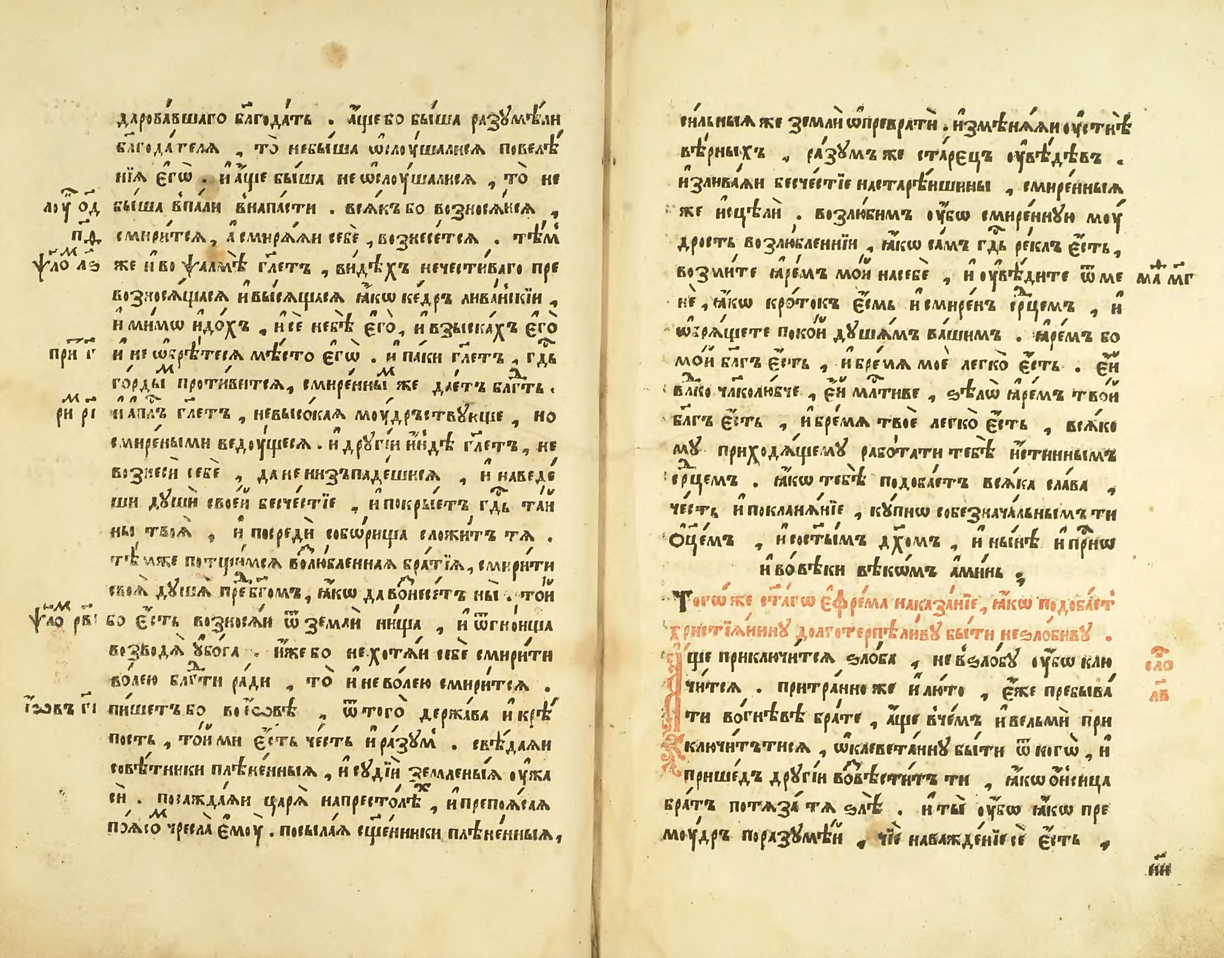 даровавшаго бл҃года́ть . а҆́ще бо бы́ша разꙋмѣ́ли
бл҃года́телѧ , то̀ небы́ша ѡ҆слоу́шалисѧ повелѣ́
нїѧ є҆гѡ̀ . и҆ а҆́ще бы́ша не ѡ҆слоу́шалисѧ , то̀ не
лоу҃ ѻд бы́ша впа́ли внапа́сти . всѧ́къ бо возносѧ́исѧ ,
п҃д смири́тсѧ , а҆ смирѧ́ѧи себѐ , вознесе́тсѧ . тѣ́м
ѱло лѕ же и҆ во ѱалмѣ̀ гл҃етъ , ви́дѣхъ нечести́ваго пре
возносѧ́щасѧ и҆ высѧ́щасѧ ꙗ҆́кѡ ке́дръ лива́нскїи ,
и҆ ми́мѡ и҆до́хъ , и҆ сѐ небѣ̀ є҆го̀ , и҆ взыска́хъ є҆го̀
при г҃ и҆ не ѡ҆брѣ́тесѧ мѣ́сто є҆гѡ̀ . и҆ па́ки гл҃етъ , гд҇ь
го́рдымъ проти́витсѧ , смире́ннымъ же дае́тъ бл҃гть .
ри҃м р҃і и҆ а҆п҇лъ гл҃етъ , невысо́каѧ моу́дръствꙋюще , но
смире́ными ведоу́щесѧ . и҆ дрꙋгі́и и҆́ндѣ гл҃етъ , не
вознесѝ себѐ , да не низъпаде́шисѧ , и҆ наведе́
ши дꙋшѝ свое́й безче́стїе , и҆ покры́етъ гд҇ь та́и
ны твоѧ̀ , и҆ посредѝ собо́рища сложи́тъ тѧ .
тѣ́мже потщи́мсѧ возлю́бленнаѧ бра́тїѧ , смири́ти
своѧ̀ дꙋ́шѧ пред бг҃омъ , ꙗ҆́кѡ да вознесе́тъ ны . то́й
ѱло рв҃і бо є҆́сть возносѧ́и ѿ землѝ ни́ща , и҆ ѿ гно́ища
возводѧ̀ ᲂу҆бо́га . и҆́же бо не хотѧ́и себѐ смири́ти
во́лею бл҃гти ра́ди , то̀ и҆ не во́лею смири́тсѧ .
і҆ѡвъ г҃і пи́шетъ бо во і҆ѡ́вѣ , ѿ того̀ держа́ва и҆ крѣ́
пость , то́й ми є҆́сть че́сть и҆ ра́зꙋм . свѣда́ѧи
совѣ́тники плѣне́нныѧ , и҆ сꙋдїѝ земле́ныѧ оу҆жа
сѝ . посажда́ѧи царѧ̀ напресто́лѣх , и҆ препоѧ́саѧ
по́ѧсомъ чресла̀ є҆моу̀ . посыла́ѧ сщ҃е́нники плѣне́нныѧ ,
си́льныѧ же землѝ ѡ҆превратѝ . и҆змѣнѧ́ѧи оу҆стнѣ̀
вѣ́рныхъ , ра́зꙋмъ же ста́рецъ оу҆вѣ́дѣвъ .
и҆злива́ѧи безче́стїе настарѣ́ишины , смире́нныѧ
же и҆сцѣлѝ . возлю́бимъ оу҆́бѡ смире́ннꙋю моу́
дрость возлю́бленнїи , ꙗ҆́кѡ са́мъ гд҇ь ре́клъ є҆́сть ,
возми́те ꙗ҆ре́мъ мо́й насебѐ , и҆ оу҆вѣ́дите ѿ ме мат҇ѳ м҃г
нѐ , ꙗ҆́кѡ кро́токъ є҆́смь и҆ смире́нъ срд҇цемъ , и҆
ѡ҆брѧ́щете поко́й дꙋша́мъ ва́шимъ . ꙗ҆ре́мъ бо
мо́й бл҃гъ є҆́сть , и҆ бре́мѧ моѐ легко̀ є҆́сть . є҆́й
влд҇ко чл҃колю́бче , є҆́й млст҇иве , ѕѣлѡ̀ ꙗ҆ре́мъ тво́й
бл҃гъ є҆́сть , и҆ бре́мѧ твоѐ легко̀ є҆́сть , всѧ́ко
мꙋ приходѧ́щемꙋ рабо́тати тебѣ̀ и҆́стиннымъ
срд҇цемъ . ꙗ҆́кѡ тебѣ̀ подоба́етъ всѧ́ка сла́ва ,
че́сть и҆ поклонѧ́нїе , кꙋ́пнѡ собезнача́льнымъ ти
ѻ҆ц҃емъ , и҆ сост҃ымъ дх҃омъ , и҆ ны́нѣ и҆ при́снѡ
и҆ во вѣ́ки вѣкѡ́мъ а҆ми́нь .
Тогѡ́же ст҃а́гѡ є҆фре́ма наказа́нїе , ꙗ҆́кѡ подоба́етъ
христїѧ́нинꙋ долготерпѣли́вꙋ бы́ти незло́бивꙋ .
А҆ще приключи́тсѧ ѕло́ба , не вѕло́бꙋ оу҆́бѡ клю сло
чи́тсѧ . притра́нно же и҆ лю́то , є҆́же пребыва́ л҃в
ти во гнѣ́вѣ бра́те , а҆́ще вче́мъ и҆ ве́льми при
ключи́тъ тисѧ , ѡ҆клевета́ннꙋ бы́ти ѿ когѡ̀ , и҆
прише́дъ дрꙋгі́и возвѣсти́тъ ти , ꙗ҆́кѡ ѻ҆́нсица
бра́тъ потѧза́ тѧ ѕлѣ̀ . и҆ ты̀ оу҆́бѡ ꙗ҆́кѡ пре
моу́дръ поразꙋмѣ́й , чїѐ наважде́нїе сѐ є҆́сть ,
н҃и